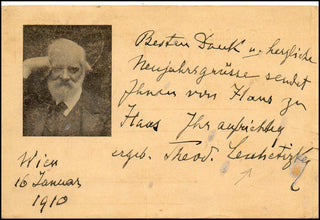 Besten Dank u. herzliche
Neujahrsgrüsse sendet
Ihnen von Haus zu
Haus Ihr aufrichtig
ergeb. Theod. Leschetizky
Wien
16 Januar
1910